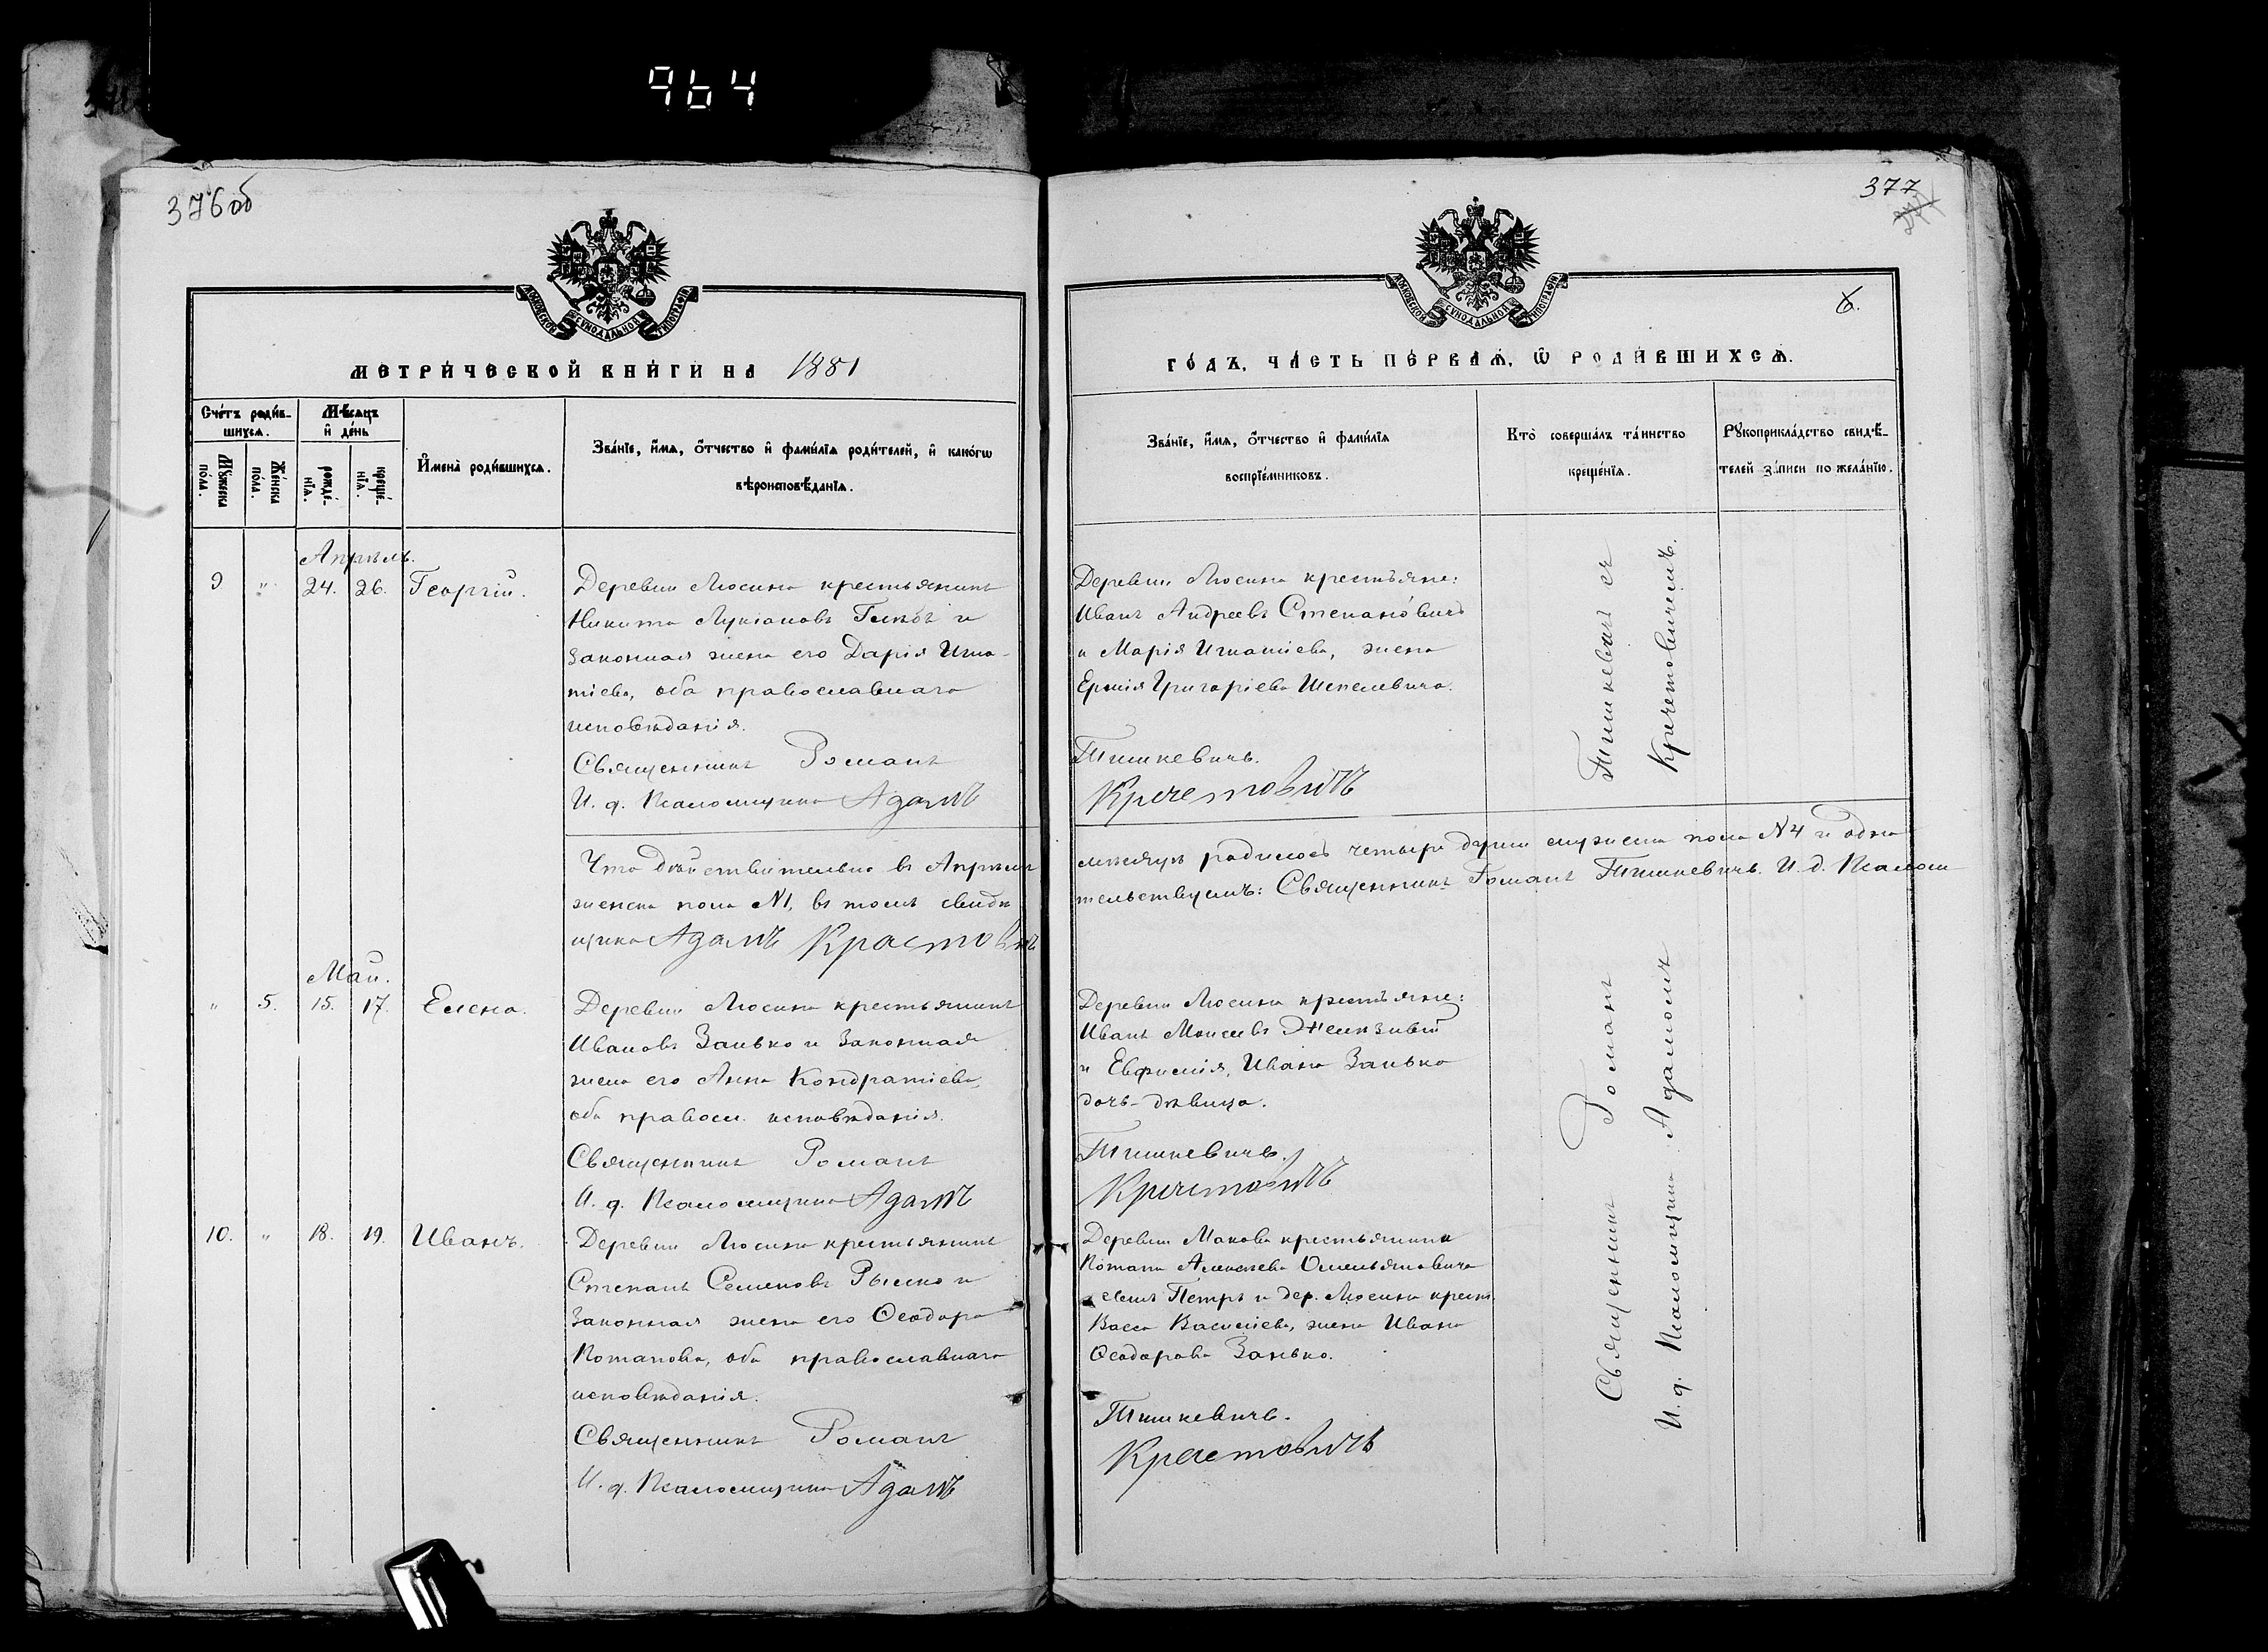 964
376об
МЕТРИЧЕСКОЙ КНИГИ НА 1881
Счетъ родив-
шихся.
Мужеска пола.
Женска пола.
Мѣсяцъ и день
рожде-
нія.
креще-
нія.
Имена родившихся.
Званіе, имя, отчество и фамилія родителей, и какогѡ
вѣроисповѣданія.
Апрѣль.
9 " 24. 26. Георгій.
Деревни Люсина крестьянинъ
Никита Лукіановъ и
законная жена его Дарія Игна-
тіева, оба православнаго
исповѣданія.
Священникъ Романъ
И. д. Псаломщика Адамъ
Что дѣйствительно въ Апрѣлѣ
женска пола №1, въ томъ свидѣ
щика Адамъ
Май.
" 5. 15. 17. Елена.
Деревни Люсина крестьянинъ
Ивановъ Занько и законная
жена его Анна Кондратіева,
оба правосл. исповѣданія.
Священникъ Романъ
И. д. Псаломщика Адамъ
10. " 18. 19. Иванъ.
Деревни Люсина крестьянинъ
Степанъ Семеновъ Рышко и
законная жена его Ѳеодора
Потапова, оба православнаго
исповѣданія.
Священникъ Романъ
И. д. Псаломщика Адамъ
377
6.
МОСКОВСКОЙ СѴНОДАЛЬНОЙ ТИПОГРАФІИ
ГОДЪ, ЧАСТЬ ПЕРВАЯ, Ѿ РОДИВШИХСЯ.
Званіе, имя, отчество и фамилія
воспріемниковъ.
Кто совершалъ таинство
крещенія.
Рукоприкладство свидѣ-
телей записи по желанію.
Деревни Люсина крестьяне:
Иванъ Андреевъ Степановичъ
и Марія Игнатіева, жена
Ермія Григоріева Шепелевича.
Тишкевичъ.
Кречетовичъ
мѣсяцѣ родилось четыре души мужеска пола №4 и одна
тельствуемъ: Священникъ Романъ Тишкевичъ. И. д. Псалом
Деревни Люсина крестьяне:
Иванъ Моисеевъ
и Евфимія, Ивана Занько
дочь-дѣвица.
Тишкевичъ.
Кречетовичъ
Деревни Макова крестьянина
Потапа Алексѣева Омельяновича
сынъ Петръ и дер. Люсина крест.
Васса Василіева, жена Ивана
Ѳеодорова Занько.
Тишкевичъ.
Кречетовичъ
Священникъ Романъ Тишкевичъ съ
И. д. Псаломщика Адамомъ Кречетовичемъ.